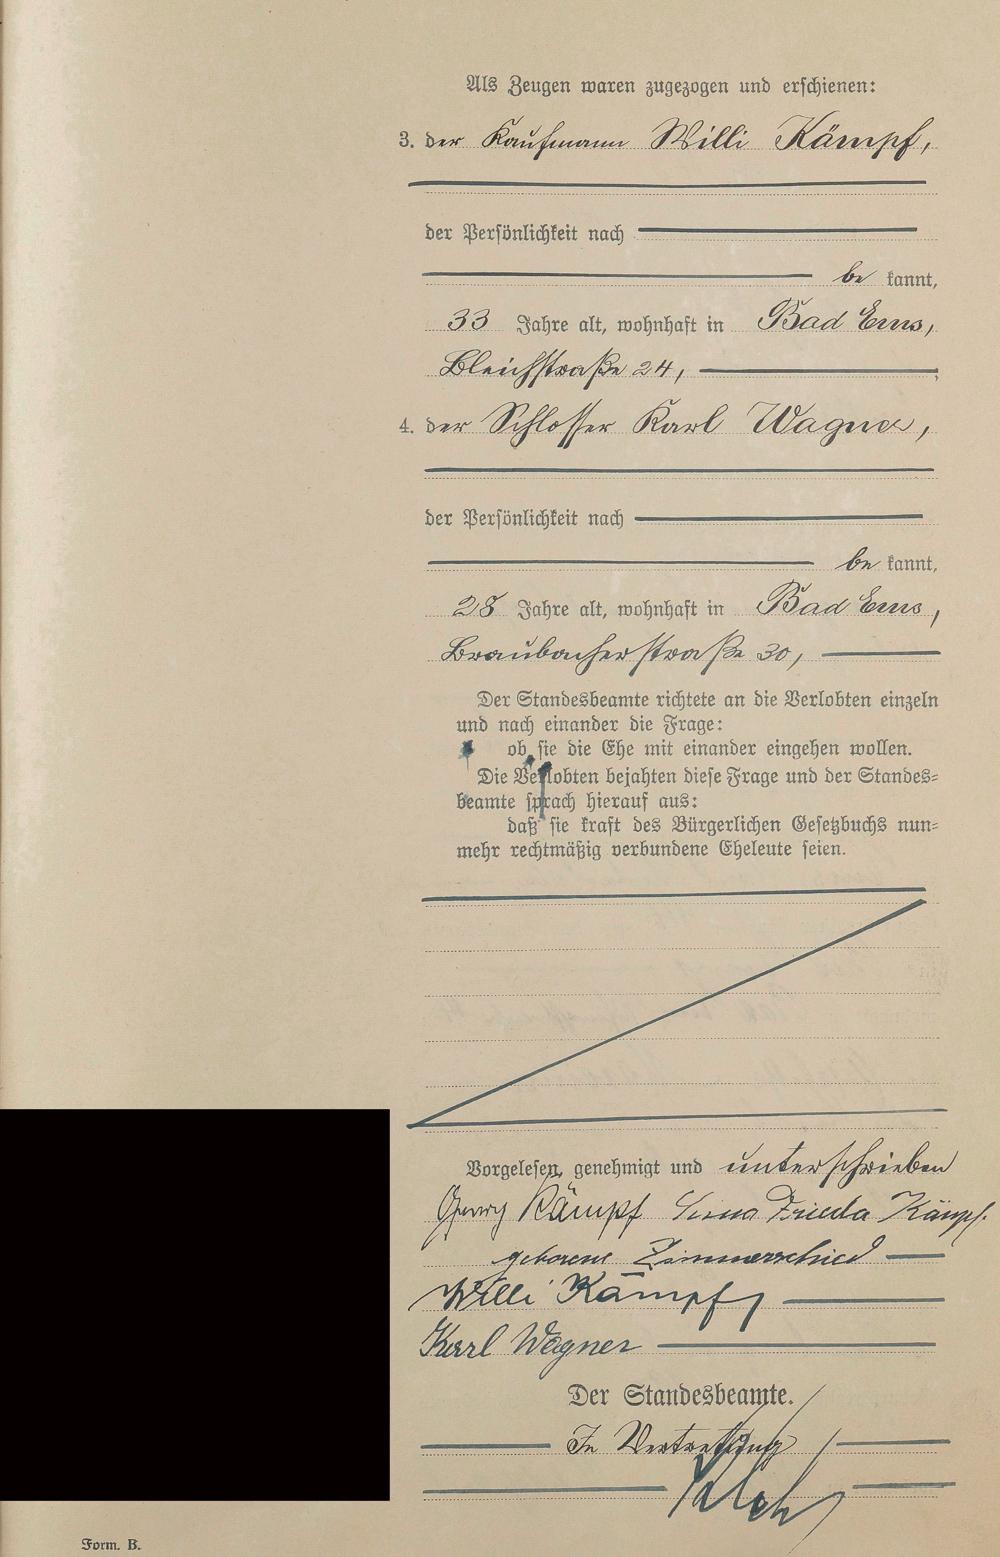 Als Zeugen waren zugezogen und erschienen:
3. der Kaufmann Willi Kämpf,
der Persönlichkeit nach
be kannt,
33 Jahre alt, wohnhaft in Bad Ems,
Bleichstraße 24,
4. der Schlosser Karl Wagner,
der Persönlichkeit nach
be kannt,
28 Jahre alt, wohnhaft in Bad Ems,
Braubacherstraße 30,
Der Standesbeamte richtete an die Verlobten einzeln
und nach einander die Frage:
ob sie die Ehe mit einander eingehen wollen.
Die Verlobten bejahten diese Frage und der Standes=
beamte sprach hierauf aus:
daß sie kraft des Bürgerlichen Gesetzbuchs nun=
mehr rechtmäßig verbundene Eheleute seien.
Vorgelesen, genehmigt und unterschrieben
Georg Kämpf Frieda Kämpf.
geborene Zimmerschied
Willi Kämpf
Karl Wagner
Der Standesbeamte.
In Vertretung
Form. B.